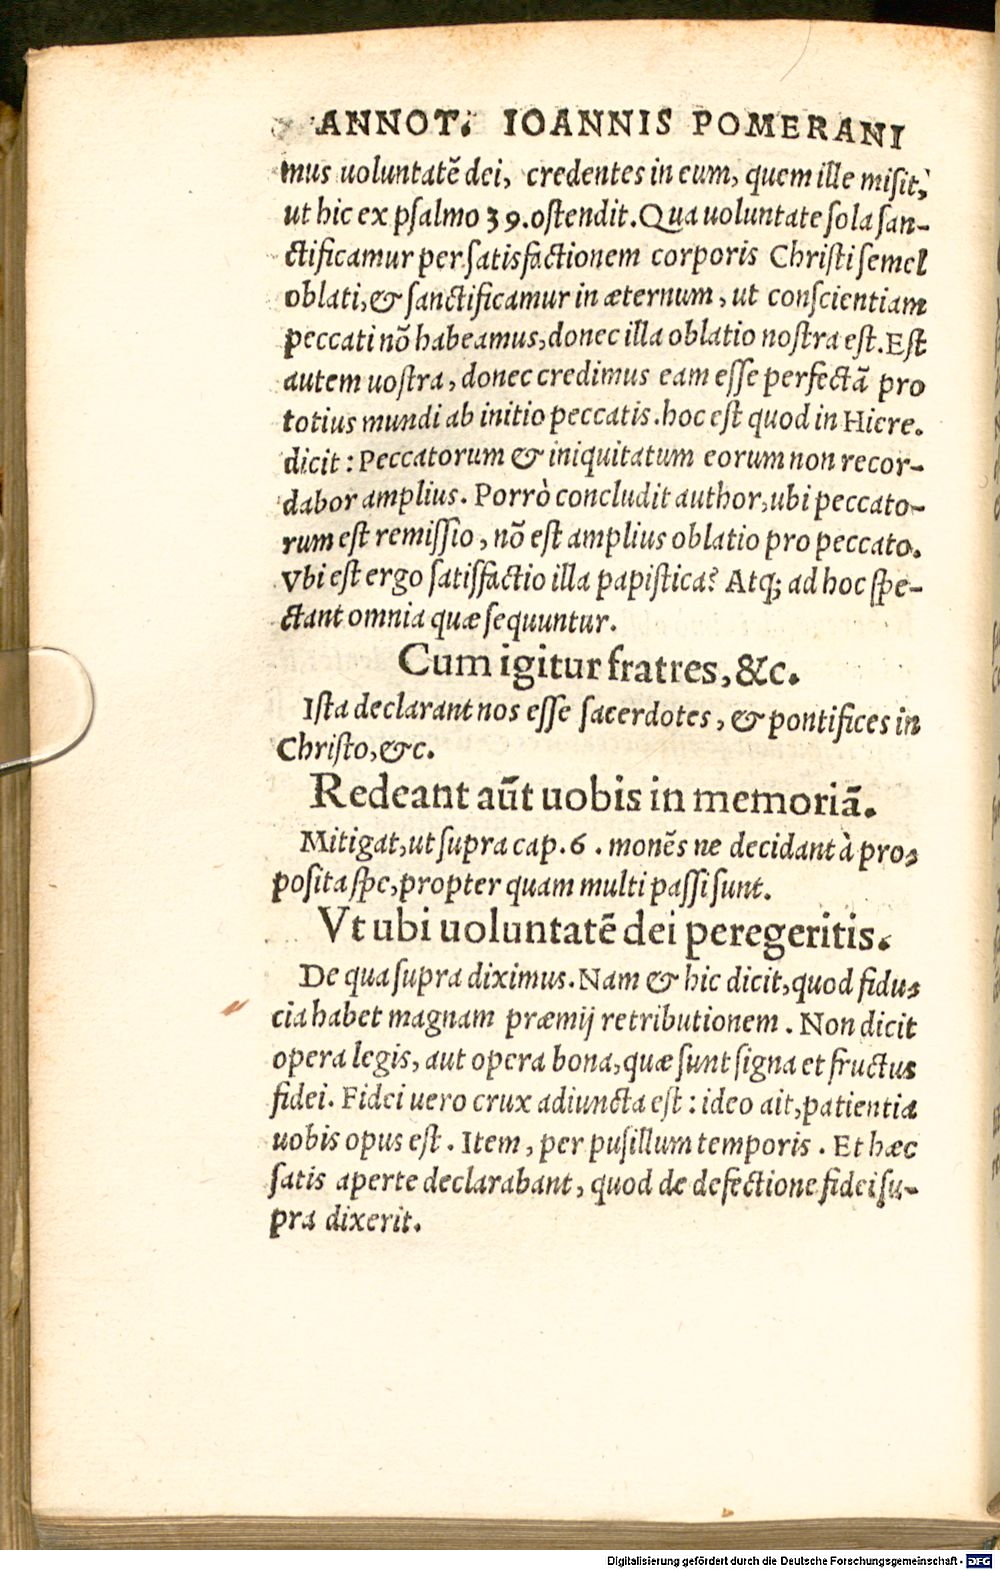 ANNOT. IOANNIS POMERANI
mus uoluntatē dei, credentes in eum, quem ille misit,
ut hic ex psalmo 39. ostendit. Qua uoluntate sola san-
ctificamur per satisfactionem corporis Christi semel
oblati, & sanctificamur in æternum, ut conscientiam
peccati nõ habeamus, donec illa oblatio nostra est. Est
autem uostra, donec credimus eam esse perfectã pro
totius mundi ab initio peccatis. hoc est quod in Hiere.
dicit: Peccatorum & iniquitatum eorum non recor-
dabor amplius. Porrò concludit author, ubi peccato-
rum est remissio, nõ est amplius oblatio pro peccato.
Vbi est ergo satisfactio illa papistica? Atq; ad hoc spe-
ctant omnia quæ sequuntur.
Cum igitur fratres, &c.
Ista declarant nos esse sacerdotes, & pontifices in
Christo, &c.
Redeant aūt uobis in memoriã.
Mitigat, ut supra cap. 6. monẽs ne decidant à pro-
posita spe, propter quam multi passi sunt.
Vt ubi uoluntatẽ dei peregeritis.
De qua supra diximus. Nam & hic dicit, quod fidu-
cia habet magnam præmij retributionem. Non dicit
opera legis, aut opera bona, quæ sunt signa et fructus
fidei. Fidei uero crux adiuncta est: ideo ait, patientia
uobis opus est. Item, per pusillum temporis. Et hæc
satis aperte declarabant, quod de defectione fidei su-
pra dixerit.
Digitalisierung gefördert durch die Deutsche Forschungsgemeinschaft - DFG